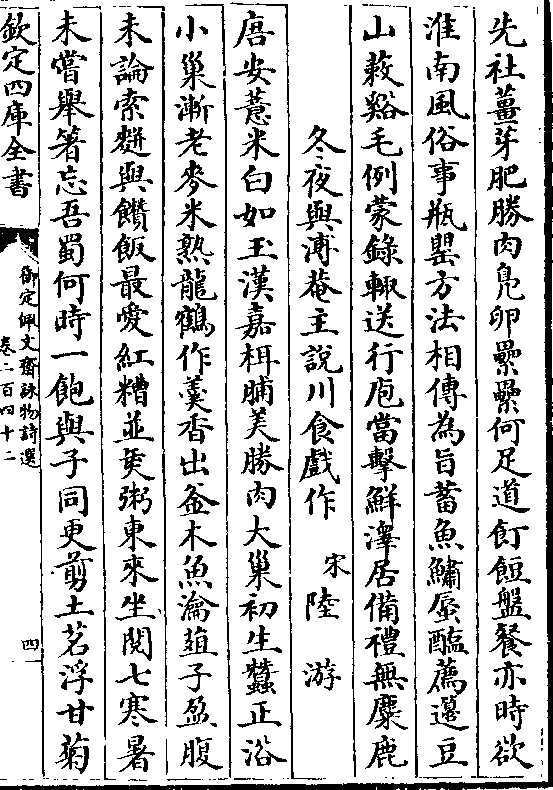 先社薑芽肥勝肉鳧卵纍纍何足道飣餖盤餐亦時欲
淮南風俗事瓶罌方法相傳為旨蓄魚鱐蜃醢薦籩豆
山蔌谿毛例蒙錄輒送行庖當擊鮮澤居備禮無麋鹿
冬夜與溥菴主說川食戲作　宋陸游
唐安薏米白如玉漢嘉栮脯美勝肉大巢初生蠶正浴
小巢漸老麥米熟龍鶴作羹香出釜木魚瀹葅子盈腹
未論索麪與饡飯最愛紅糟並缹粥東來坐閱七寒暑
未嘗舉箸忘吾蜀何時一飽與子同更翦土茗浮甘菊
欽定四庫全書
御定佩文齋詠物詩選
卷二百四十二
四